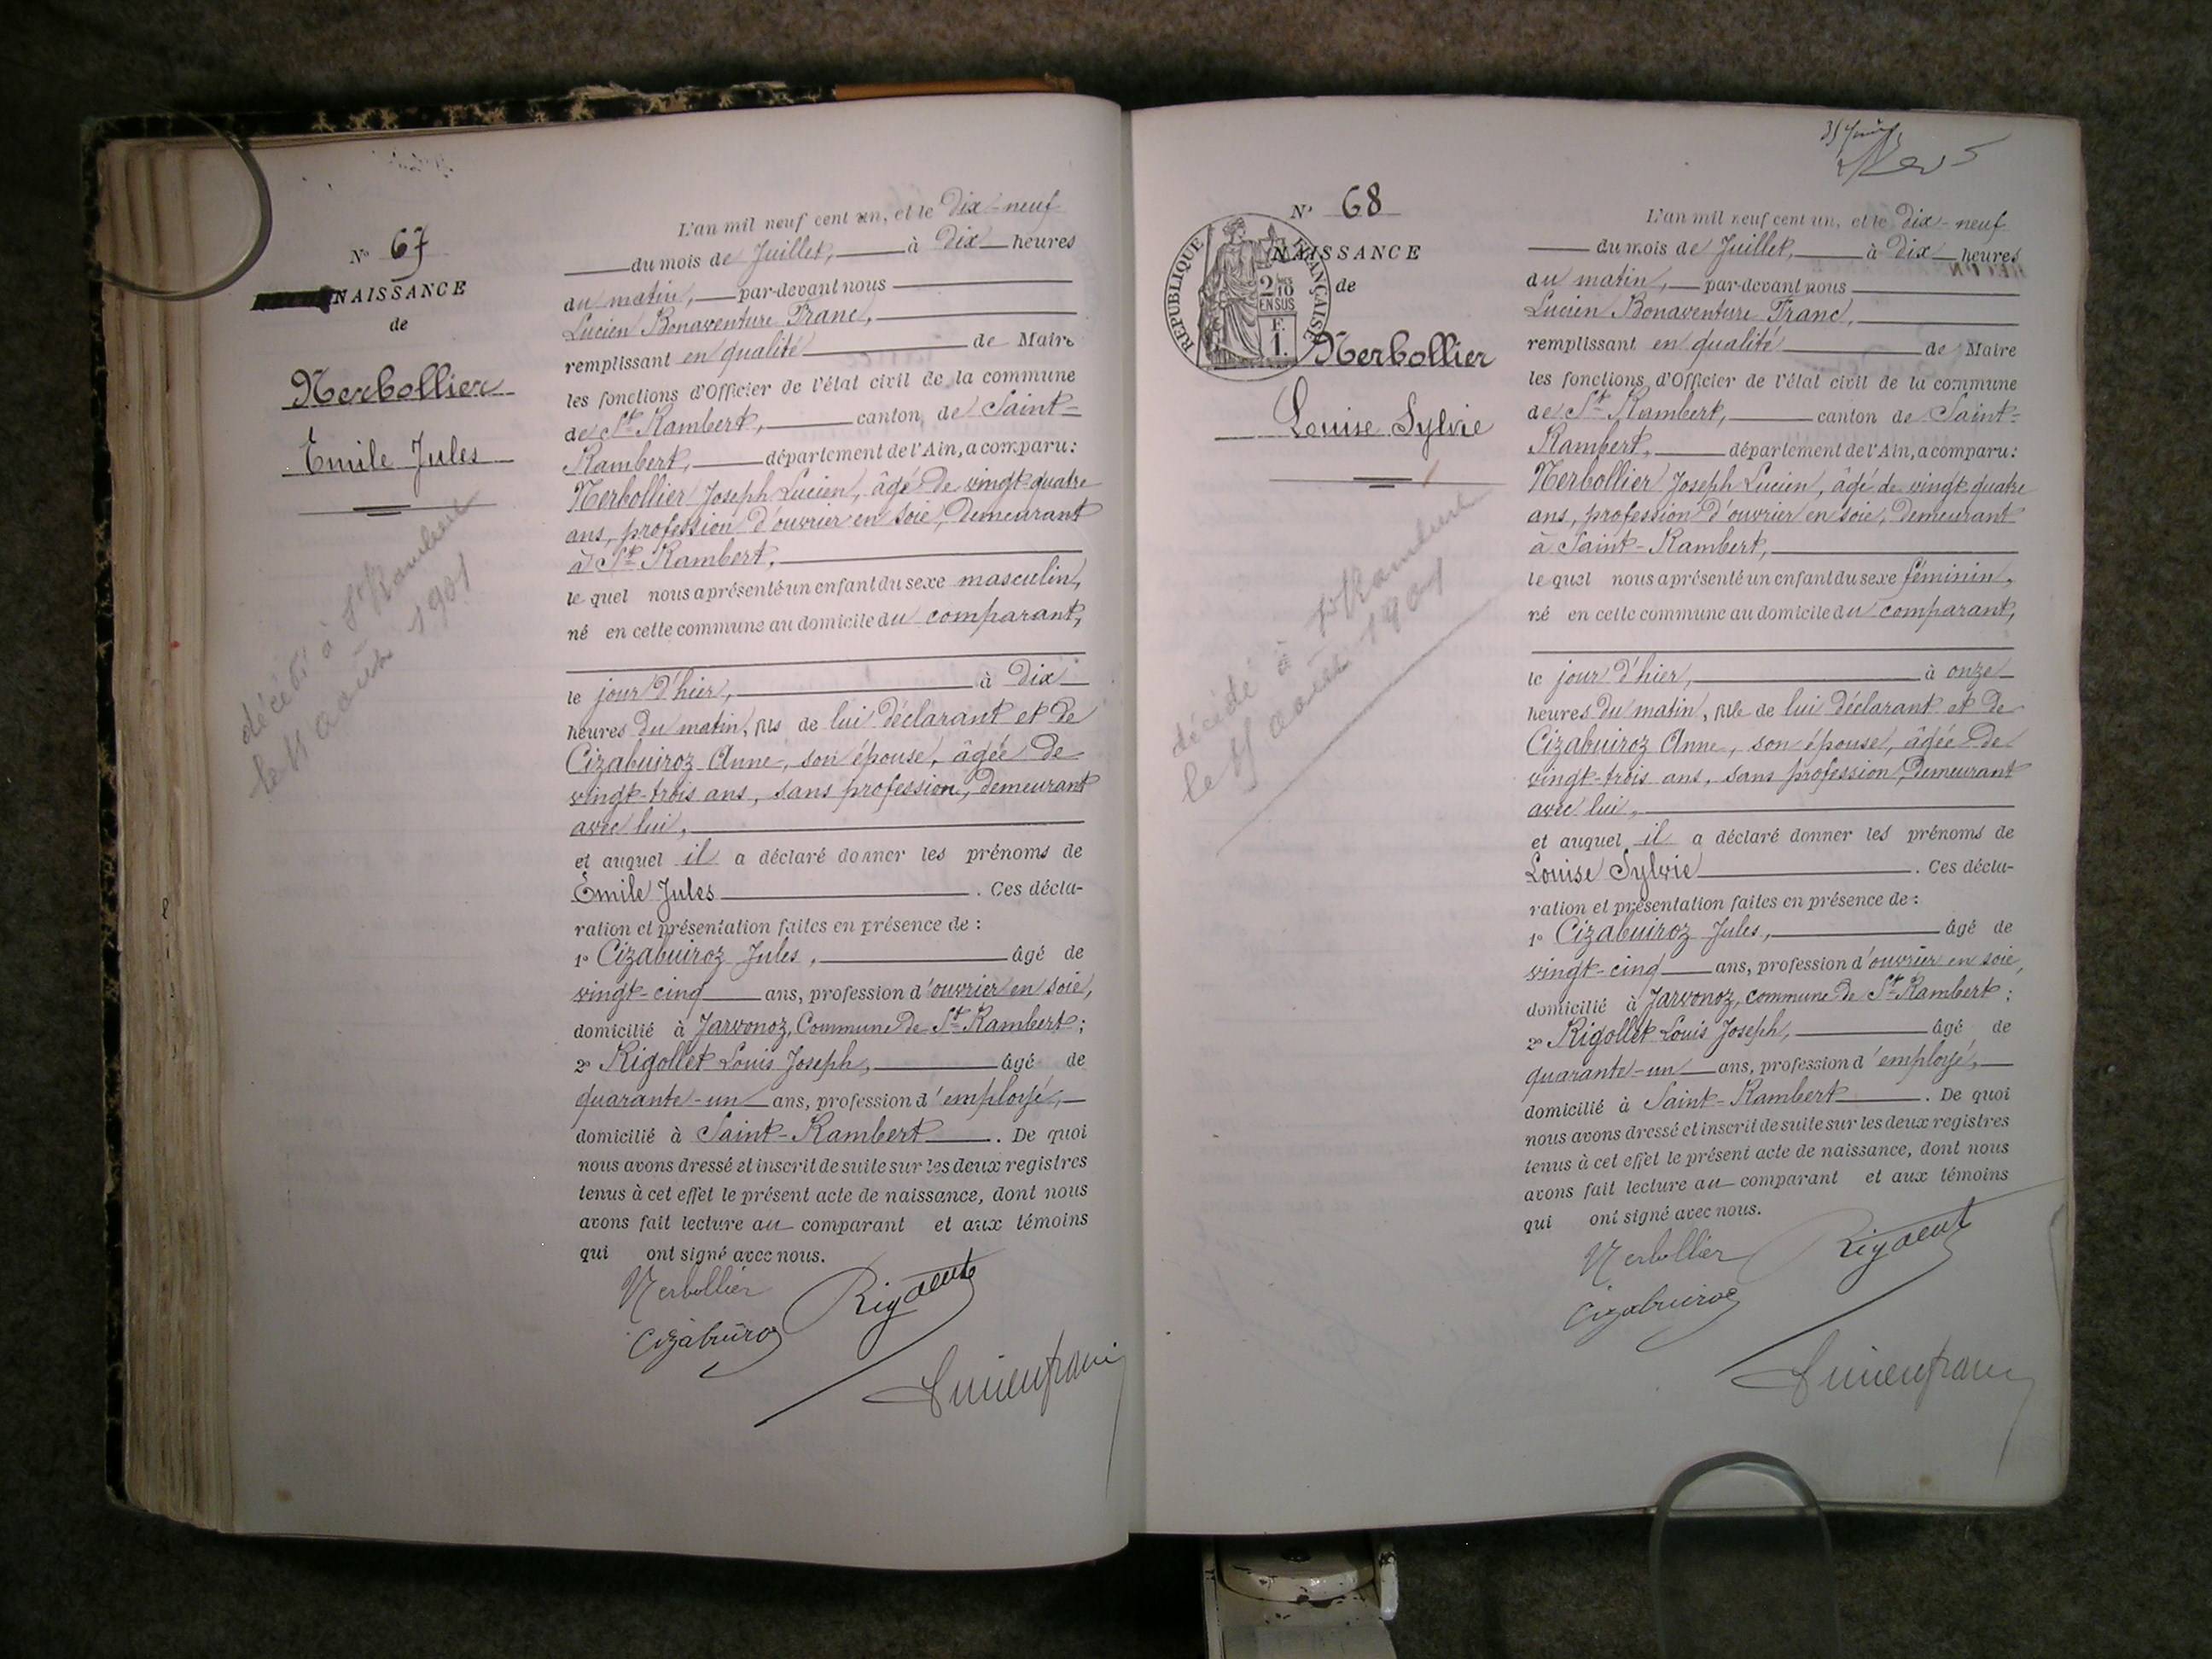 N° 67
NAISSANCE
de
Nerbollier
Émile Jules
décédé à St Rambert
le 11 août 1901
L'an mil neuf cent un, et le Dix-neuf
du mois de Juillet, à Dix heures
du matin, par-devant nous
Lucien Bonaventure Franc,
remplissant en qualité de Maire
les fonctions d'Officier de l'état civil de la commune
de St Rambert, canton de Saint-
Rambert, département de l'Ain, a comparu :
Nerbollier Joseph Lucien, âgé de vingt-quatre
ans, profession d'ouvrier en soie, demeurant
à St Rambert,
le quel nous a présenté un enfant du sexe masculin,
né en cette commune au domicile du comparant,
le jour d'hier, à Dix
heures du matin, fils de lui déclarant et de
Cizabuiroz Anne, son épouse, âgée de
vingt-trois ans, sans profession, demeurant
avec lui,
et auquel il a déclaré donner les prénoms de
Émile Jules . Ces décla-
ration et présentation faites en présence de :
1° Cizabuiroz Jules, âgé de
vingt-cinq ans, profession d'ouvrier en soie,
domicilié à Jarvonoz, Commune de St Rambert ;
2° Rigollet Louis Joseph, âgé de
quarante-un ans, profession d'employé,
domicilié à Saint-Rambert . De quoi
nous avons dressé et inscrit de suite sur les deux registres
tenus à cet effet le présent acte de naissance, dont nous
avons fait lecture au comparant et aux témoins
qui ont signé avec nous.
Nerbollier
N° 68
RÉPUBLIQUE FRANÇAISE
2/10 EN SUS
F. 1.
NAISSANCE
de
Nerbollier
Louise Sylvie
décédé à St Rambert
le 11 août 1901
L'an mil neuf cent un, et le Dix-neuf
du mois de Juillet, à Dix heures
du matin, par-devant nous
Lucien Bonaventure Franc,
remplissant en qualité de Maire
les fonctions d'Officier de l'état civil de la commune
de St Rambert, canton de Saint-
Rambert, département de l'Ain, a comparu :
Nerbollier Joseph Lucien, âgé de vingt-quatre
ans, profession d'ouvrier en soie, demeurant
à Saint-Rambert,
le quel nous a présenté un enfant du sexe féminin,
né en cette commune au domicile du comparant,
le jour d'hier, à onze
heures du matin, fille de lui déclarant et de
Cizabuiroz Anne, son épouse, âgée de
vingt-trois ans, sans profession, demeurant
avec lui,
et auquel il a déclaré donner les prénoms de
Louise Sylvie . Ces décla-
ration et présentation faites en présence de :
1° Cizabuiroz Jules, âgé de
vingt-cinq ans, profession d'ouvrier en soie,
domicilié à Jarvonoz, commune de St Rambert ;
2° Rigollet Louis Joseph, âgé de
quarante-un ans, profession d'employé,
domicilié à Saint-Rambert . De quoi
nous avons dressé et inscrit de suite sur les deux registres
tenus à cet effet le présent acte de naissance, dont nous
avons fait lecture au comparant et aux témoins
qui ont signé avec nous.
Nerbollier
Cizabuiroz